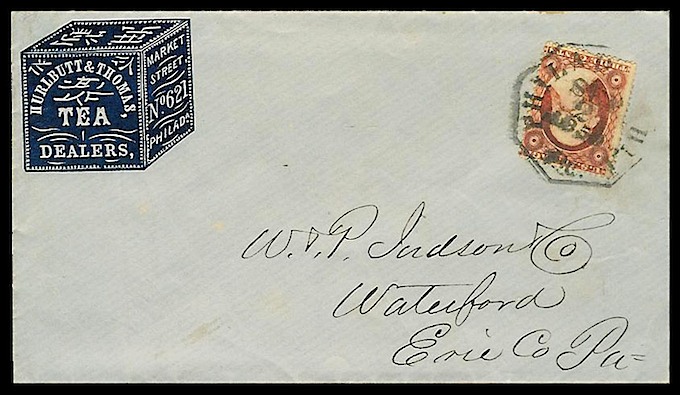 HURLBUTT & THOMAS,
TEA
DEALERS,
MARKET
STREET,
No 621
PHILADA
PHIL
W. & P. Judson & Co
Waterford
Erie Co Pa=